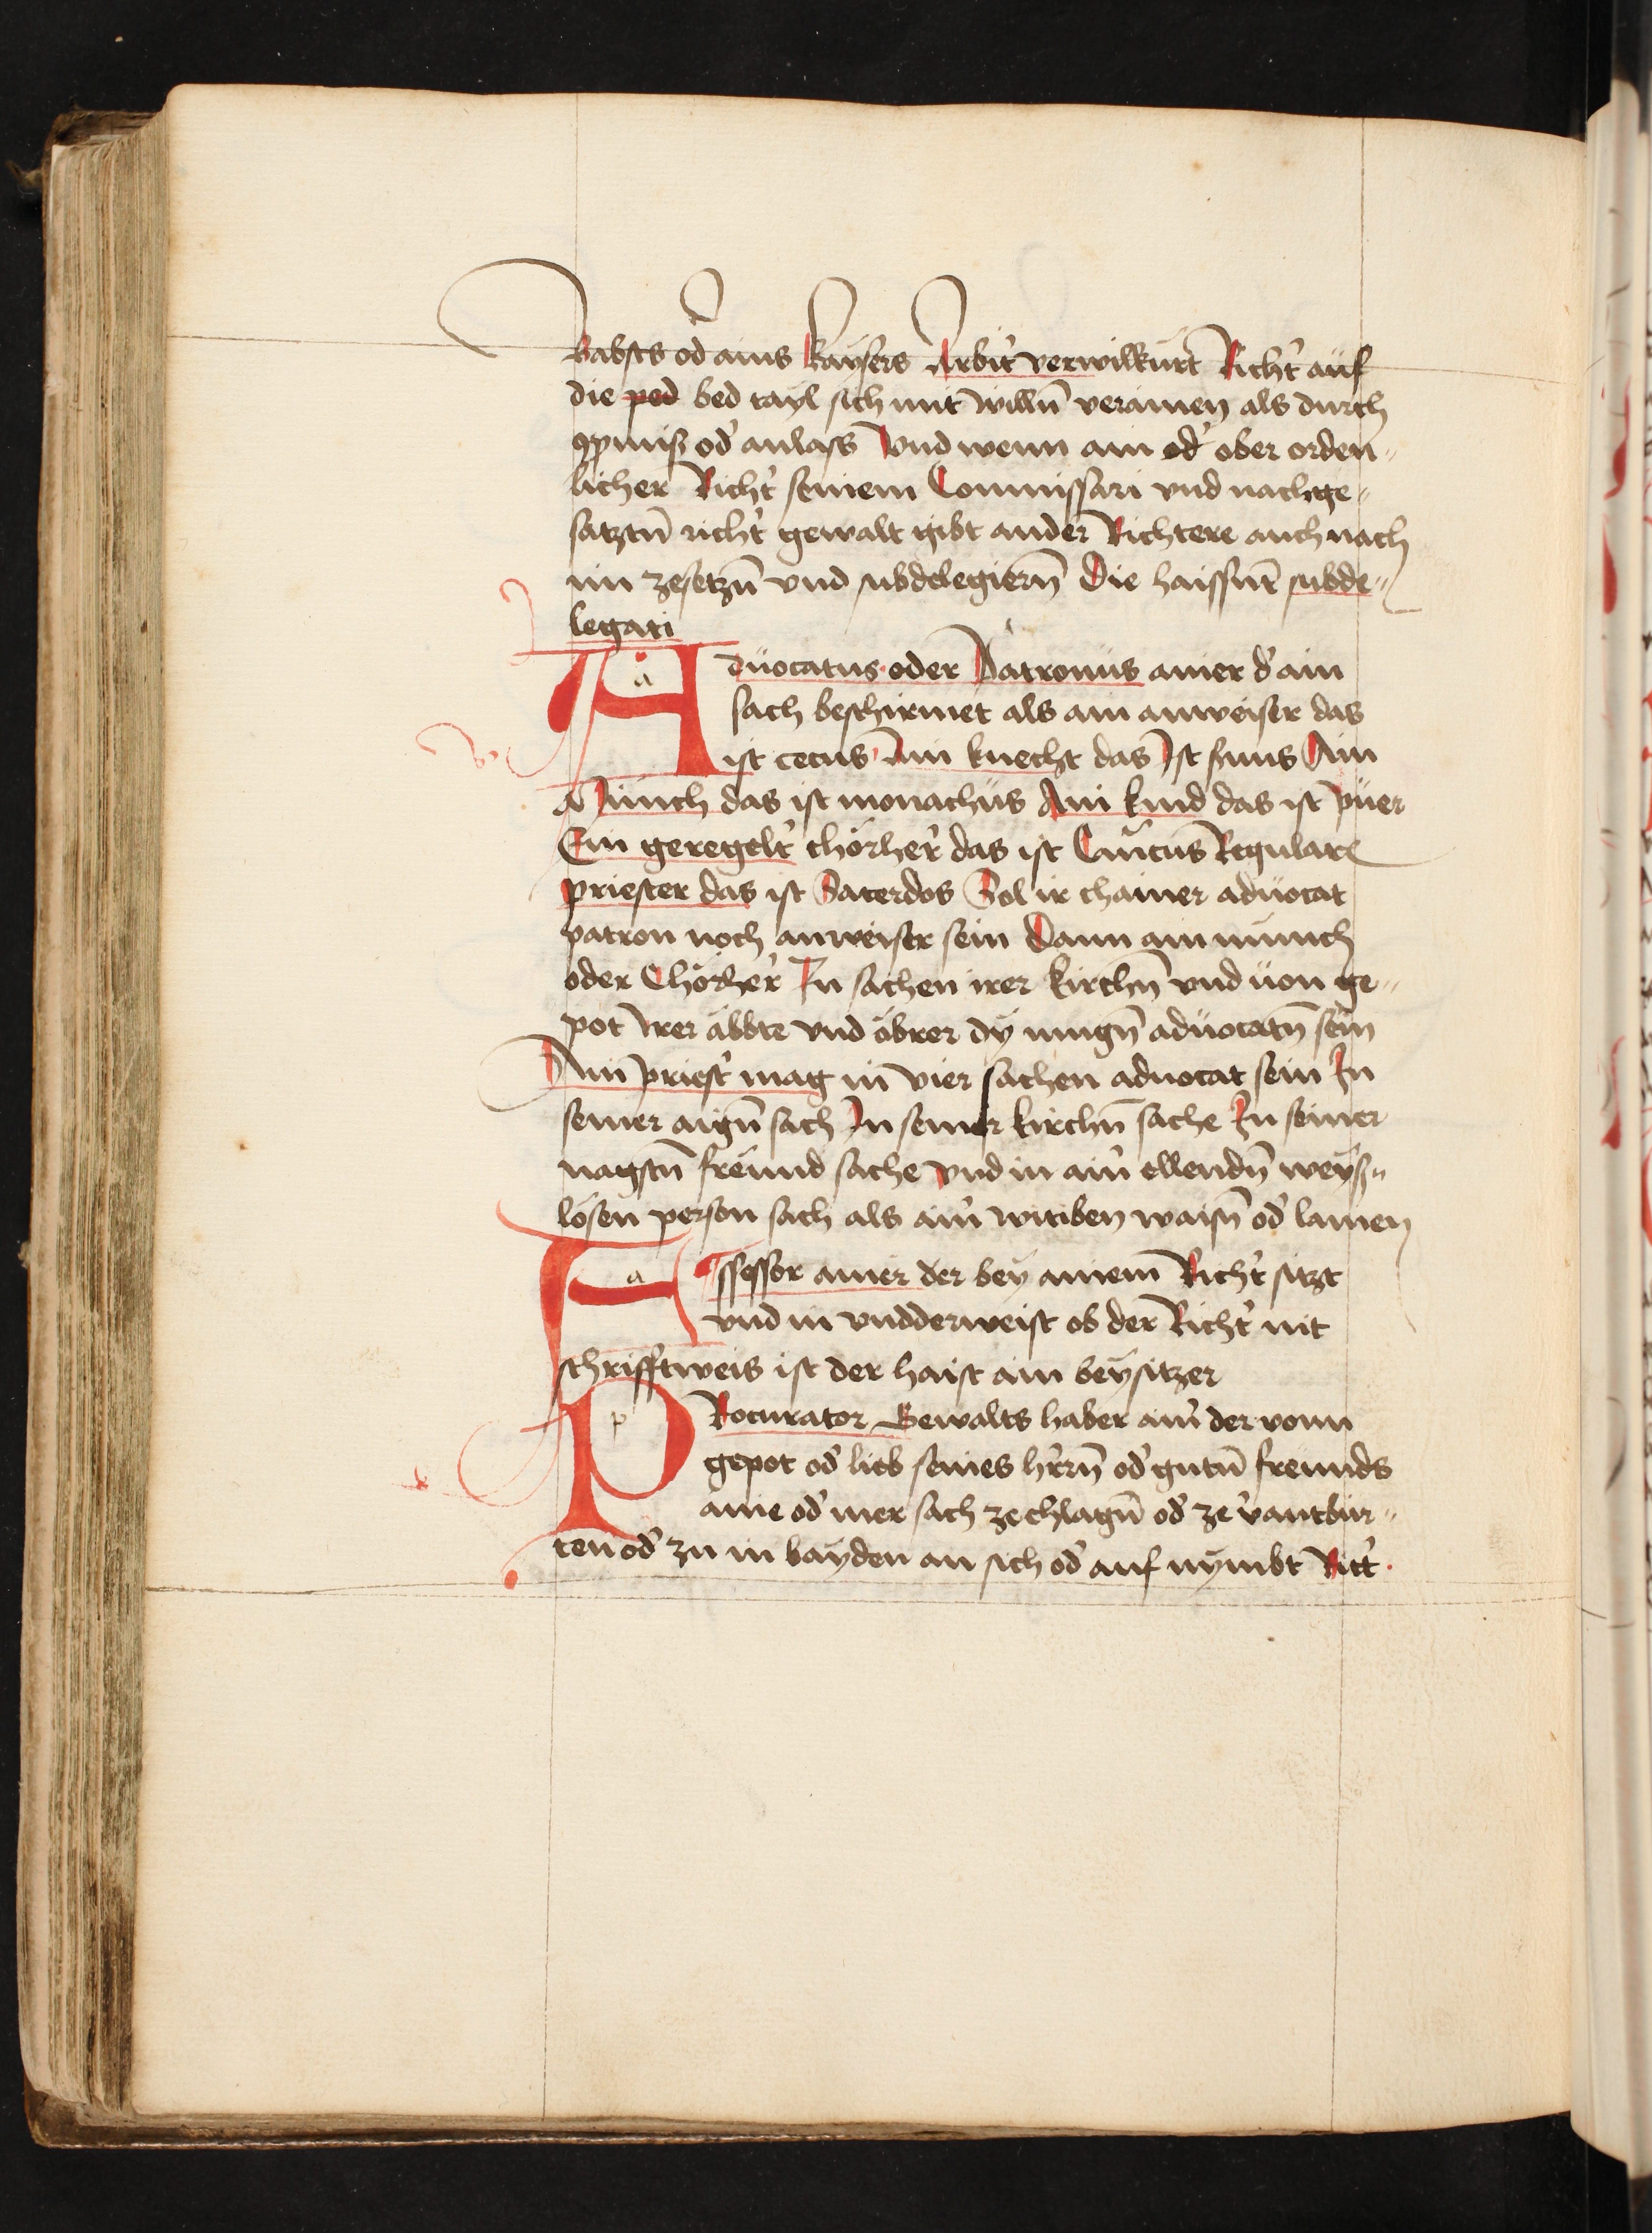 Babsts od ains kaÿsers Arbit' verwilkürt Richt' auf
die ped bed tayl sich mit willn̄ verainen als durch
ꝯpmiß od' anlass Vnd wenn ain od' ober orden„
licher Richt' seinem Commissari vnd nachge„
satztn̄ richt' gewalt gibt ander Richtere auch nach
im zesetzn̄ vnd subdelegiern̄ Die haissnt subde„
legati
Aduocatus oder Patronus ainer d' ain
sach beschirmet als ain anweiser das
ist cecus Ain knecht das Ist s'uus Ain
Münch das ist monachus Ain kind das ist puer
Ein geregelt' chorher' das ist Canōicus Regulare
priester das ist Sacerdos Sol ir chainer aduocat
patron noch anweiser sein Dann ain münch
oder Chorher' In sachen irer kirchn̄ vnd uon ge„
pot Irer äbbte vnd öbrer dÿ mugn̄ aduocatn̄ sein
Ain priest' mag in vier sachen aduocat sein In
seiner aign̄ sach In seiner kirchn̄ sache In seiner
nagstn̄ freund sache vnd in ain' ellendn̄ weÿs„
losen person sach als ain' witiben waisn̄ od' lamen
Assessor ainer der beÿ ainem Richt' sitzt
vnd in vndderweist ob der Richt' nit
schrifftweis ist der haist ain beÿsitzer
PRocurator Gewalts haber ain' der vonn
gepot od' lieb seines h'rrn̄ od' gutn̄ freunds
aine od' mer sach ze chlagn̄ od' ze v'antbur„
ten od' zu in baÿden an sich od' auf nÿmbt Ritt'.